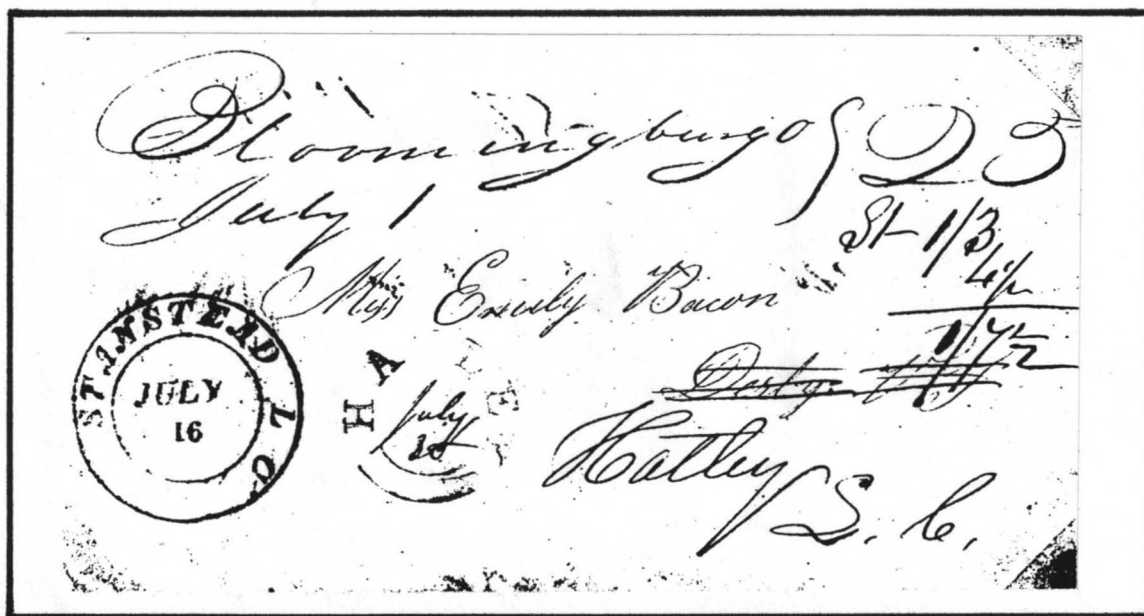 Bloomingburg O 25
July 1
St 1/3
4½
Miss Emily Bacon
1/7½
Derby
Hatley
L. C.
STANSTEAD L C.
JULY
16
HATLEY
July